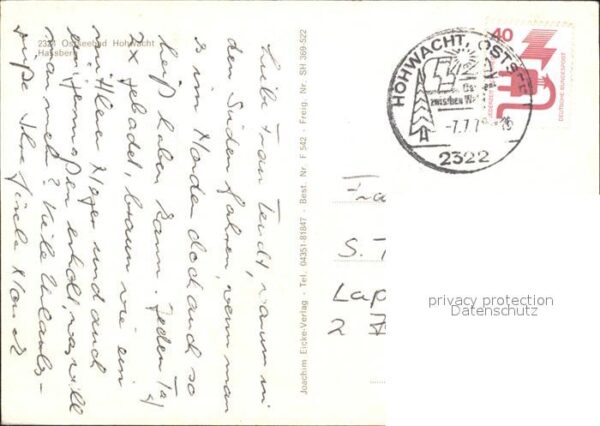 2321 Ostseebad Hohwacht
Hassberg
Liebe Frau Tendt, warum in
den Süden fahren, wenn man
es im Norden doch auch so
heiß haben kann. Jeden Tag
2x gebadet, braun wie ein
Neger und auch
erholt, was will
man mehr? Viele Urlaubs-
grüße Ihre Gisela
Joachim Eicke-Verlag - Tel. 04351-81847 - Best. Nr. F 542 - Freig. Nr. SH 369-522
HOHWACHT, OSTSEE
-7.7.7
2322
40
JEDERZEIT
DEUTSCHE BUNDESPOST
Fra
S. T
Lap
2
privacy protection
Datenschutz